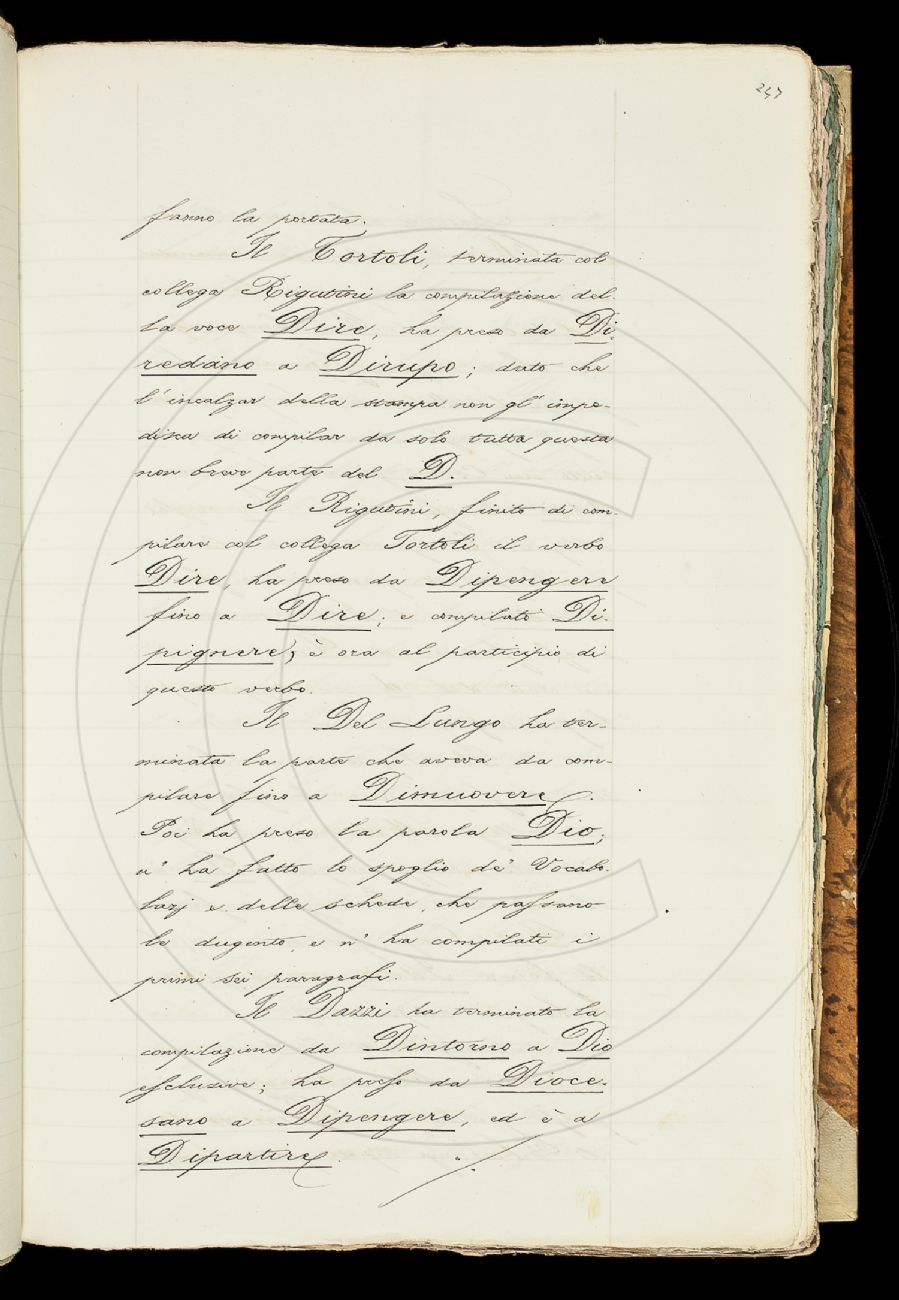 247
fanno la portata.
Il Tortoli, terminata col
collega Rigutini la compilazione del-
la voce Dire, ha preso da Di-
redano a Dirupo; dato che
l'incalzar della stampa non gl'impe-
disca di compilar da solo tutta questa
non breve parte del D.
Il Rigutini, finito di com-
pilare col collega Tortoli il verbo
Dire, ha preso da Dipengere
fino a Dire; e compilato Di-
pignere, è ora al participio di
questo verbo.
Il Del Lungo ha ter-
minata la parte che aveva da com-
pilare fino a Dimuovere.
Poi ha preso la parola Dio;
n'ha fatto lo spoglio de' Vocabo-
larj e delle schede, che passano
le dugento, e n'ha compilati i
primi sei paragrafi.
Il Dazzi ha terminato la
compilazione da Dintorno a Dio
esclusive; ha preso da Dioce-
sano a Dipengere, ed è a
Dipartire.